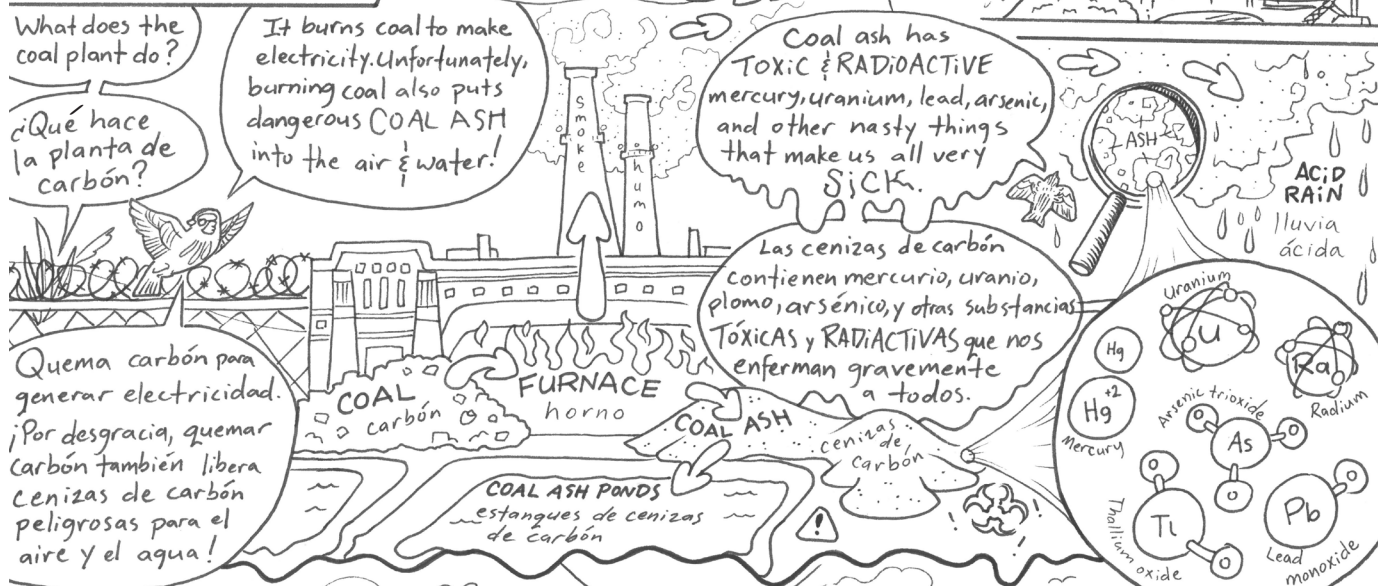 What does the
coal plant do?
¿Qué hace
la planta de
carbón?
It burns coal to make
electricity. Unfortunately,
burning coal also puts
dangerous COAL ASH
into the air & water!
Quema carbón para
generar electricidad.
¡Por desgracia, quemar
carbón también libera
cenizas de carbón
peligrosas para el
aire y el agua!
smoke
humo
COAL
carbón
FURNACE
horno
COAL ASH
cenizas
de
carbón
COAL ASH PONDS
estanques de cenizas
de carbón
!
! !
! !
Coal ash has
TOXIC & RADIOACTIVE
mercury, uranium, lead, arsenic,
and other nasty things
that make us all very
SICK.
Las cenizas de carbón
contienen mercurio, uranio,
plomo, arsénico, y otras substancias
TÓXICAS y RADIACTIVAS que nos
enferman gravemente
a todos.
ASH
ACID
RAIN
lluvia
ácida
Uranium
U
Hg
Hg+2
Mercury
Ra
Radium
Arsenic trioxide
As
O
O
O
Tl
O
O
Thallium oxide
Pb
O
Lead
monoxide